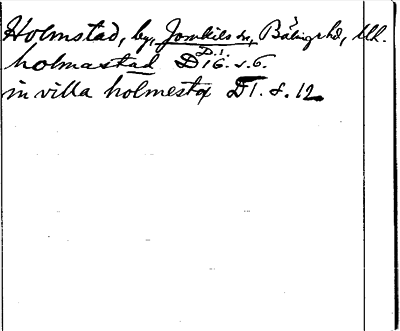 Holmstad, by, Jomkils sn, Bälingehd, Upl.
holmastad D.I. D16. s.6.
in villa holmestad D1. s. 12